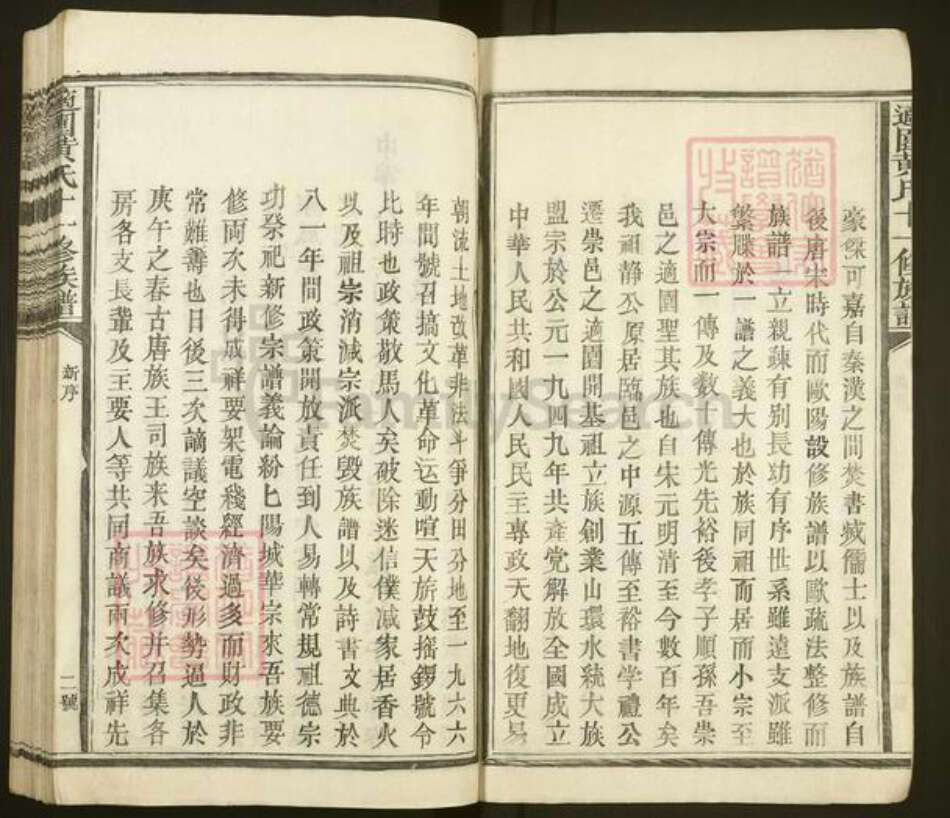 適園黃氏十一修族譜
豪傑可嘉自秦漢之間焚書城儒士以及族譜自
後唐宋時代而歐陽設修族譜以歐疏法整修而
族譜一立親疎有別長幼有序世系雖遠支派雖
繁牒於一譜之義大也於族同祖而居而小宗至
大宗而一傳及數十傳光先裕後孝子順孫吾崇
邑之適園聖其族也自宋元明清至今數百年矣
我祖静公原居臨邑之中源五傳至裕書学禮公
遷崇邑之適園開基祖立族創業山環水統大族
盟宗於公元一九四九年共產党解放全國成立
中華人民共和國人民民主專政天翻地復更易
朝流土地改革非法斗爭分田分地至一九六六
年間號召搞文化革命运動喧天旂鼓搖鑼號令
比時也政策敬馬人矣破除迷信僕减家居香火
以及祖宗消滅宗派焚毀族譜以及詩書文典於
八一年間政策開放責任到人易轉常規祖德宗
功祭祀新修宗譜義論粉匕陽城華宗來吾族要
修両次未得成祥要架電綫經濟過多而財政非
常難籌也日後三次謫議空談矣後形勢逼人於
庚午之春古唐族王司族来吾族求修并召集各
房各支長輩及主要人等共同商議兩次成祥先
適園黃氏十一修族譜
新序
二號
FamilySearch